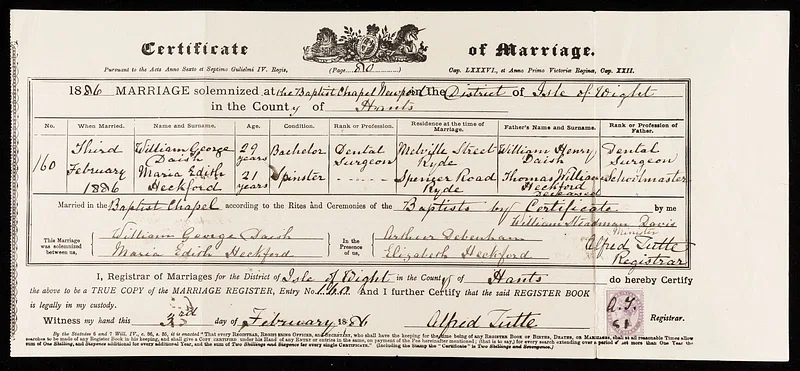 Certificate of Marriage.
Pursuant to the Acts Anno Sexto et Septimo Gulielmi IV. Regis, (Page 80) Cap. LXXXVI., et Anno Primo Victoriæ Reginæ, Cap. XXII.
1886 MARRIAGE solemnized at the Baptist Chapel Newport in the District of Isle of Wight
in the County of Hants
No. When Married. Name and Surname. Age. Condition. Rank or Profession. Residence at the time of Marriage. Father's Name and Surname. Rank or Profession of Father.
160
Third February 1886
William George Daish 29 years Bachelor Dental Surgeon Melville Street Ryde William Henry Daish Dental Surgeon
Maria Edith Heckford 21 years Spinster - - - - - Spencer Road Ryde Thomas William Heckford deceased Schoolmaster
Married in the Baptist Chapel according to the Rites and Ceremonies of the Baptists by Certificate by me
William Steadman Davis
Minister
This Marriage was solemnized between us,
William George Daish
Maria Edith Heckford
In the Presence of us,
Arthur Debenham
Elizabeth Heckford
Alfred Tutte
Registrar
I, Registrar of Marriages for the District of Isle of Wight in the County of Hants do hereby Certify
the above to be a TRUE COPY of the MARRIAGE REGISTER, Entry No. 160 And I further Certify that the said REGISTER BOOK
is legally in my custody.
Witness my hand this 3rd day of February 1886 Alfred Tutte Registrar.
A.T.
By the Statute 6 and 7 Will. IV., c. 86, s. 35, it is enacted "That every REGISTRAR, REGISTERING OFFICER, and SECRETARY, who shall have the keeping for the time being of any REGISTER BOOK OF BIRTHS, DEATHS, OR MARRIAGES, shall at all reasonable Times allow
searches to be made of any Register Book in his keeping, and shall give a COPY certified under his Hand of any ENTRY or ENTRIES in the same, on payment of the Fee hereinafter mentioned; (that is to say,) for every search extending over a period not more than One Year the
sum of One Shilling, and Sixpence additional for every additional Year, and the Sum of Two Shillings and Sixpence for every single CERTIFICATE." (Including the Stamp the "Certificate" is Two Shillings and Sevenpence.)